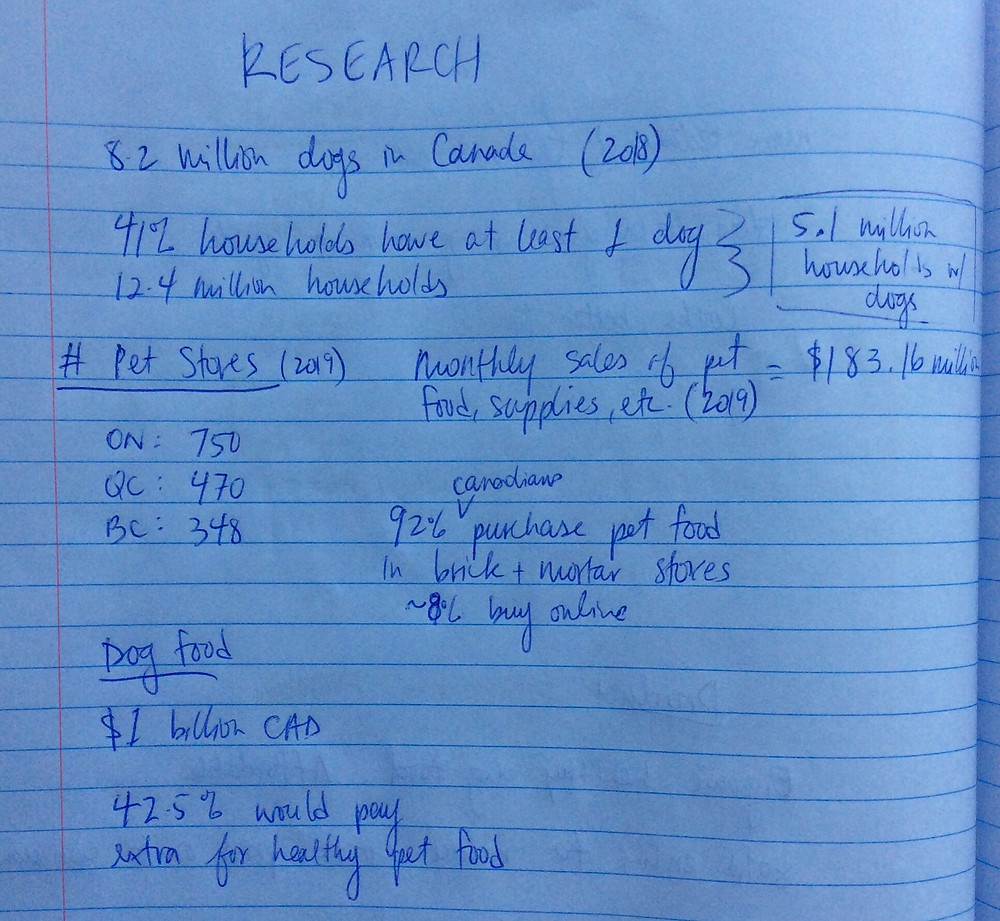 RESEARCH
8.2 million dogs in Canada (2018)
41% households have at least 1 dog
12.4 million households
5.1 million
households w/
dogs
# Pet Stores (2019)
ON: 750
QC: 470
BC: 348
Monthly sales of pet = $183.16 million
food, supplies, etc. (2019)
canadians
92% purchase pet food
in brick + mortar stores
~8% buy online
Dog food
$1 billion CAD
42.5% would pay
extra for healthy pet food